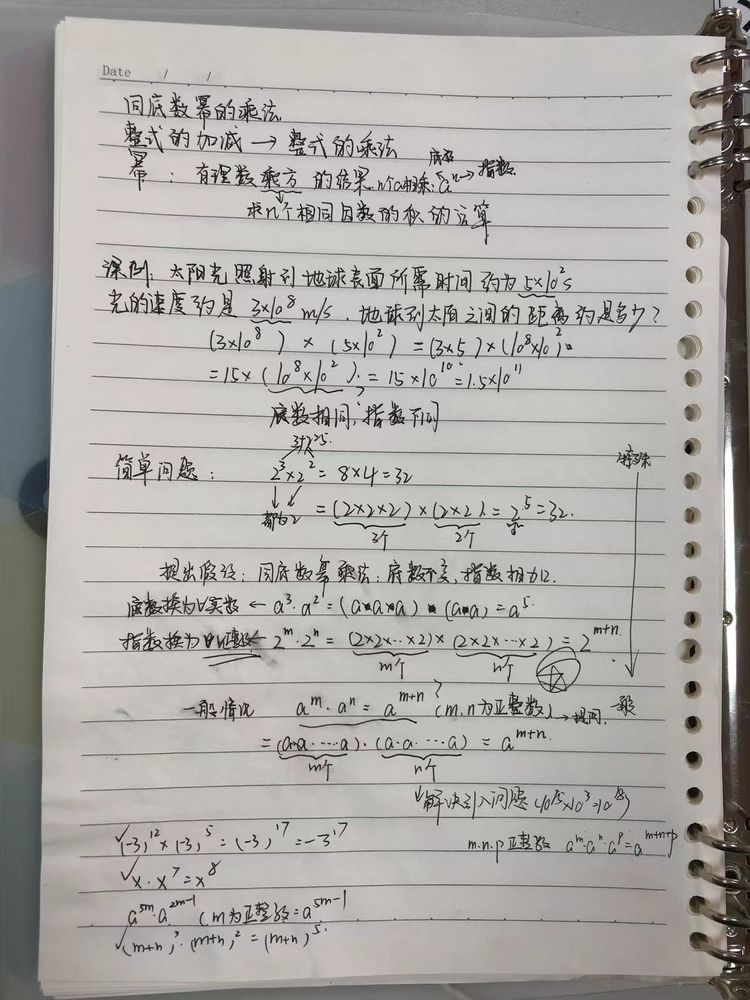 Date / /
同底数幂的乘法
整式的加减 → 整式的乘法
底数
幂：有理数乘方的结果.n个a相乘.aⁿ→指数
求n个相同因数的积的运算
课例：太阳光照射到地球表面所需时间约为5×10²s
光的速度约是3×10⁸m/s.地球到太阳之间的距离约是多少?
(3×10⁸)×(5×10²)=(3×5)×(10⁸×10²)
=15×(10⁸×10²).=15×10¹⁰=1.5×10¹¹
底数相同,指数不同
3+2=5.
简单问题：2³×2²=8×4=32
特殊
都为2 =(2×2×2)×(2×2)=2⁵=32.
3个 2个
提出假设：同底数幂乘法：底数不变,指数相加.
底数换为∀实数 ← a³·a²=(a·a·a)·(a·a)=a⁵.
指数换为∀正整数← 2ᵐ·2ⁿ=(2×2×…×2)×(2×2×…×2)=2ᵐ⁺ⁿ.
m个 n个
一般情况 aᵐ·aⁿ=aᵐ⁺ⁿ?(m.n为正整数)→提问. 一般
=(a·a·…·a)·(a·a·…·a)=aᵐ⁺ⁿ.
m个 n个
解决引入问题(10⁵×10³=10⁸)
✓(-3)¹²×(-3)⁵=(-3)¹⁷=-3¹⁷
m.n.p正整数 aᵐ·aⁿ·aᵖ=aᵐ⁺ⁿ⁺ᵖ
✓x·x⁷=x⁸
a³ᵐ·a²ᵐ⁻¹(m为正整数)=a⁵ᵐ⁻¹
✓(m+n)³·(m+n)²=(m+n)⁵.